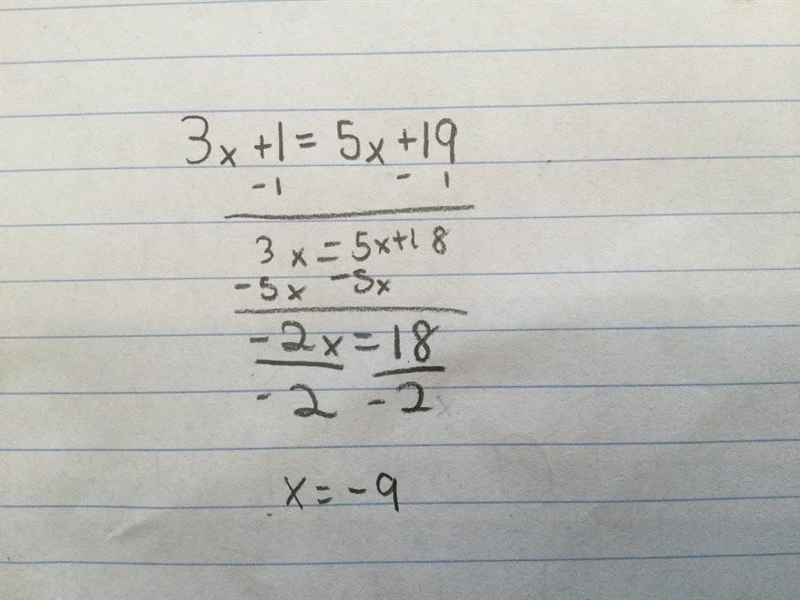 3x +1 = 5x +19
-1 - 1
3x = 5x+18
-5x -5x
-2x = 18
-2 -2
x = -9